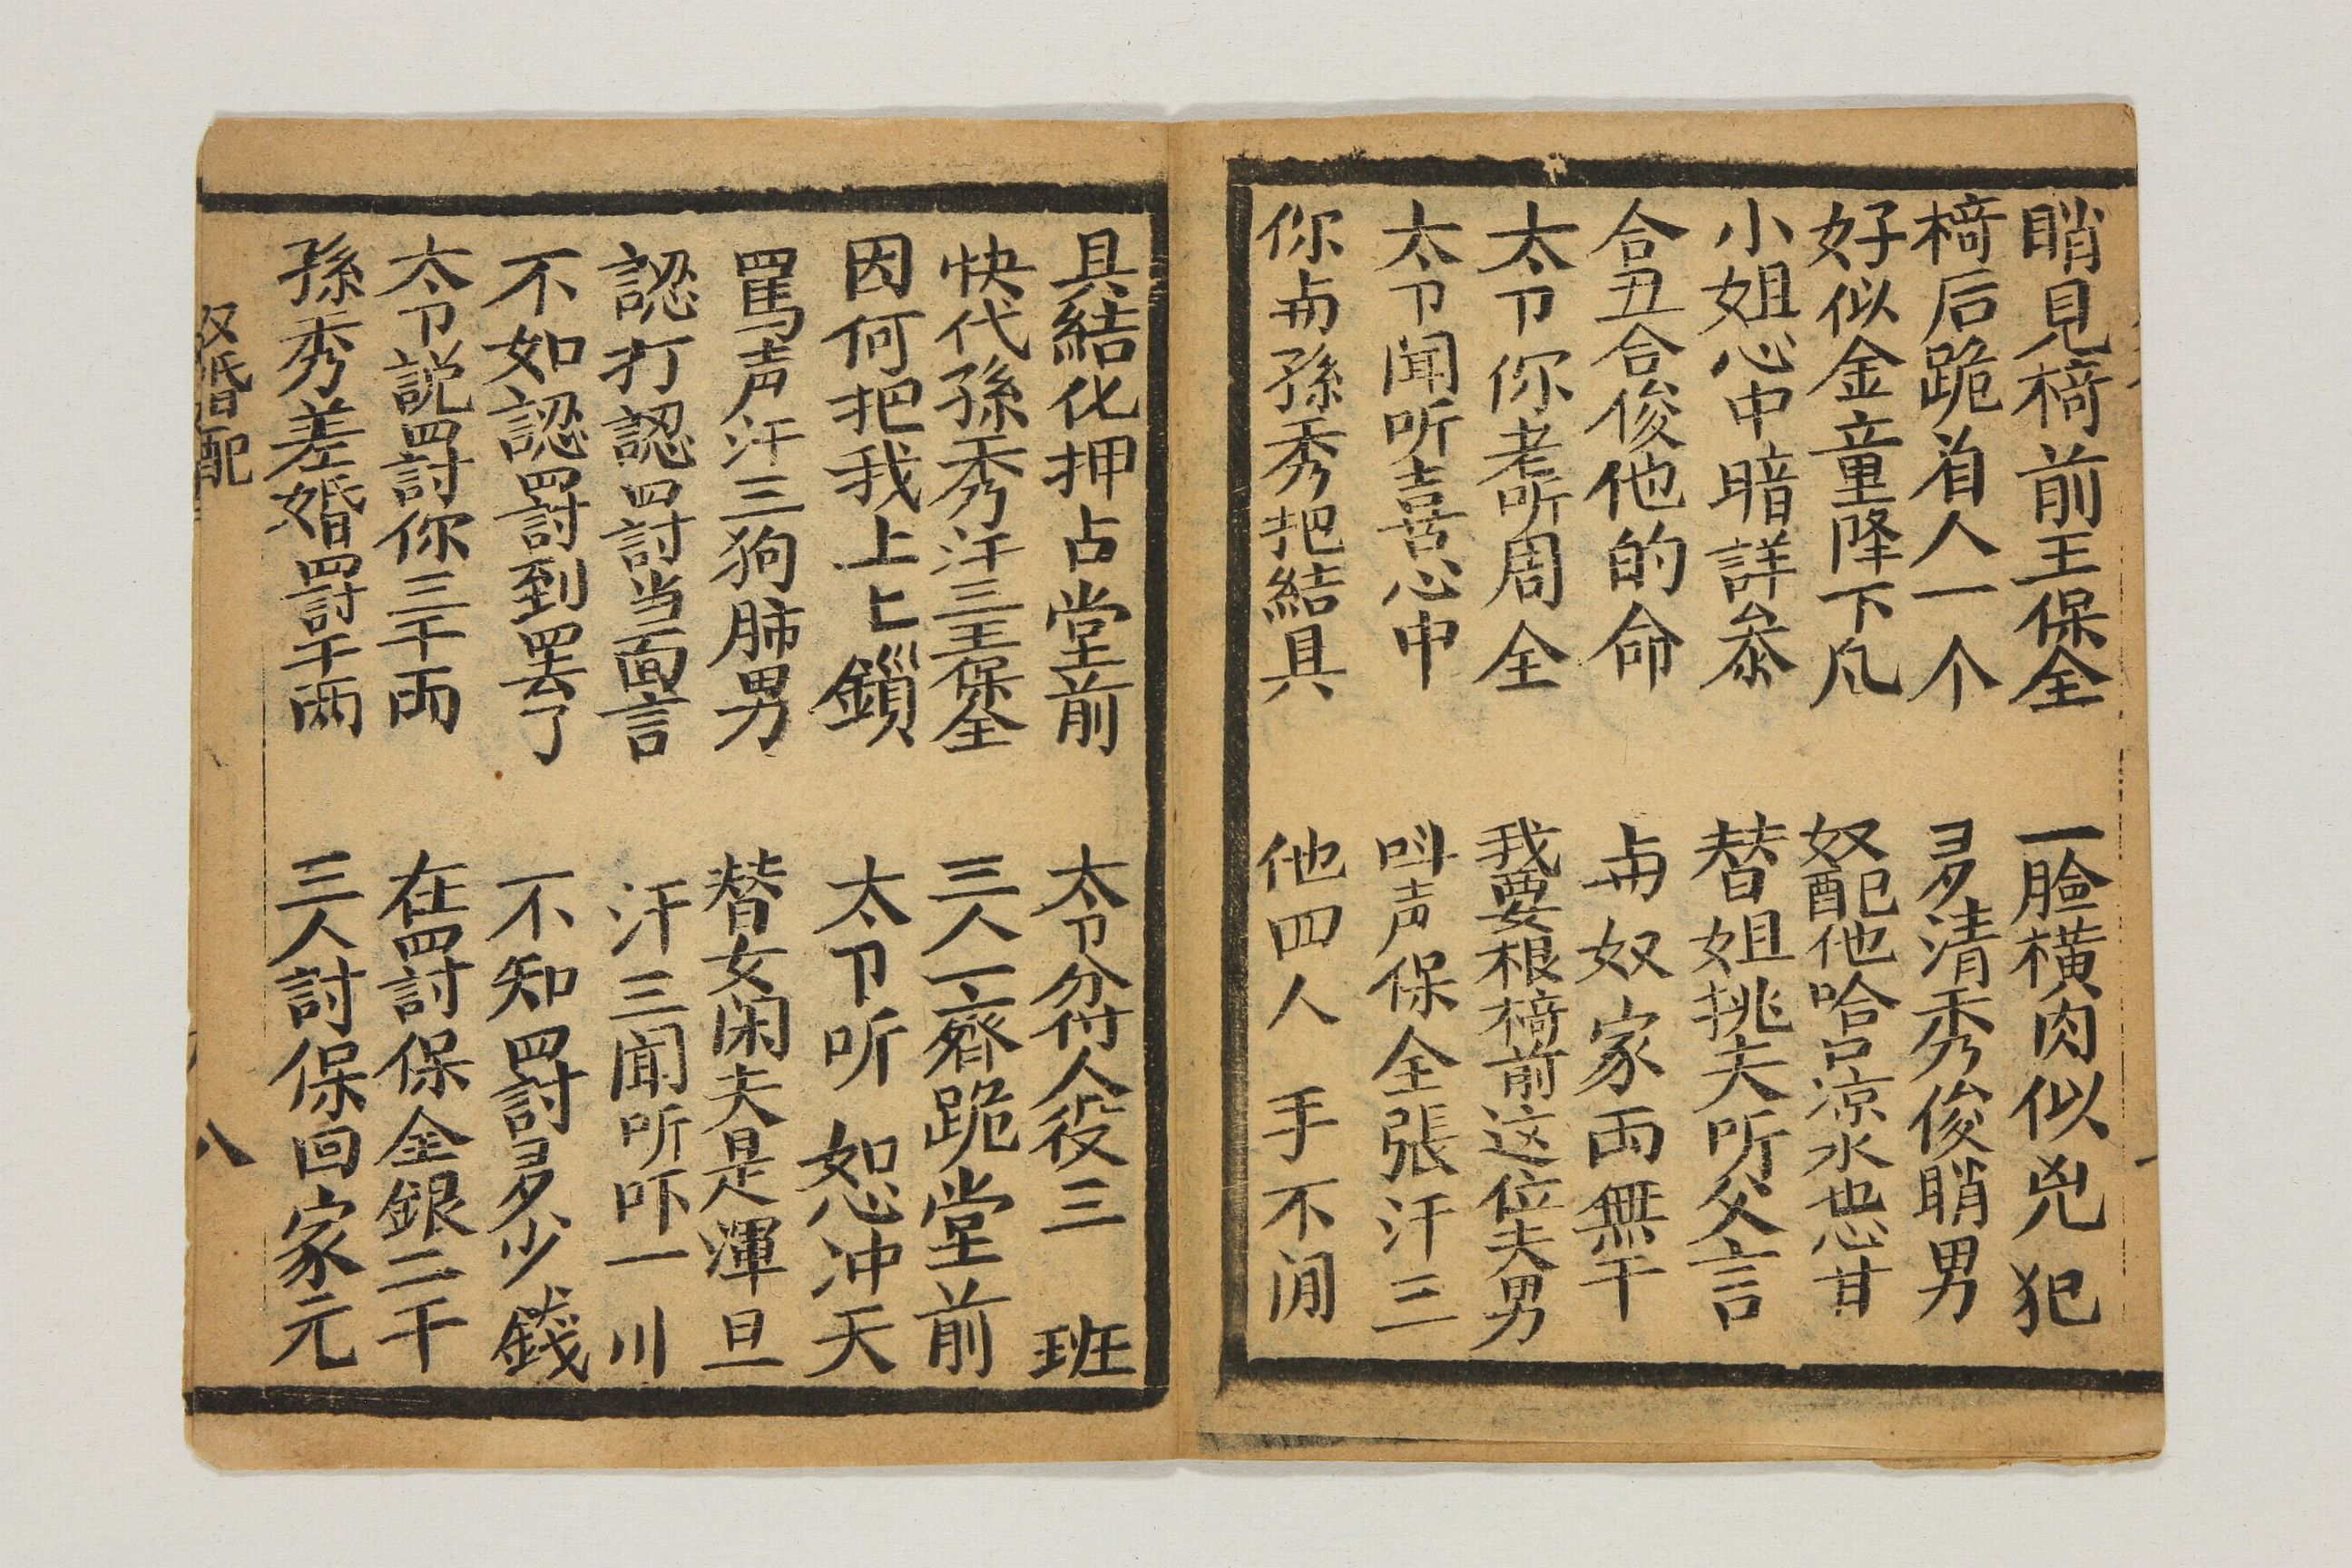 睄見椅前王保全　一臉橫肉似兇犯
椅后跪着人一个　多清秀俊睄男
好似金童降下凡　奴配他哈口涼水也甘
小姐心中暗詳叅　替姐挑夫听父言
合丑合俊他的命　与奴家両無干
太卩你老听周全　我要根椅前这位夫男
太卩闻听喜心中　叫声保全張汗三
你与孫秀把結具　他四人手不闲
具結化押占堂前　太卩分付人役三班
快代孫秀汗三王保全　三人一齊跪堂前
因何把我上上鎖　太卩听恕冲天
罵声汗三狗肺男　替女闲夫是渾旦
認打認罸当面言　汗三闻听吓一川
不如認罸到罢了　不知罸多少錢
太卩説罸你三千両　在罸保全銀二千
孫秀差婚罸千両　三人討保回家元
婚配
八